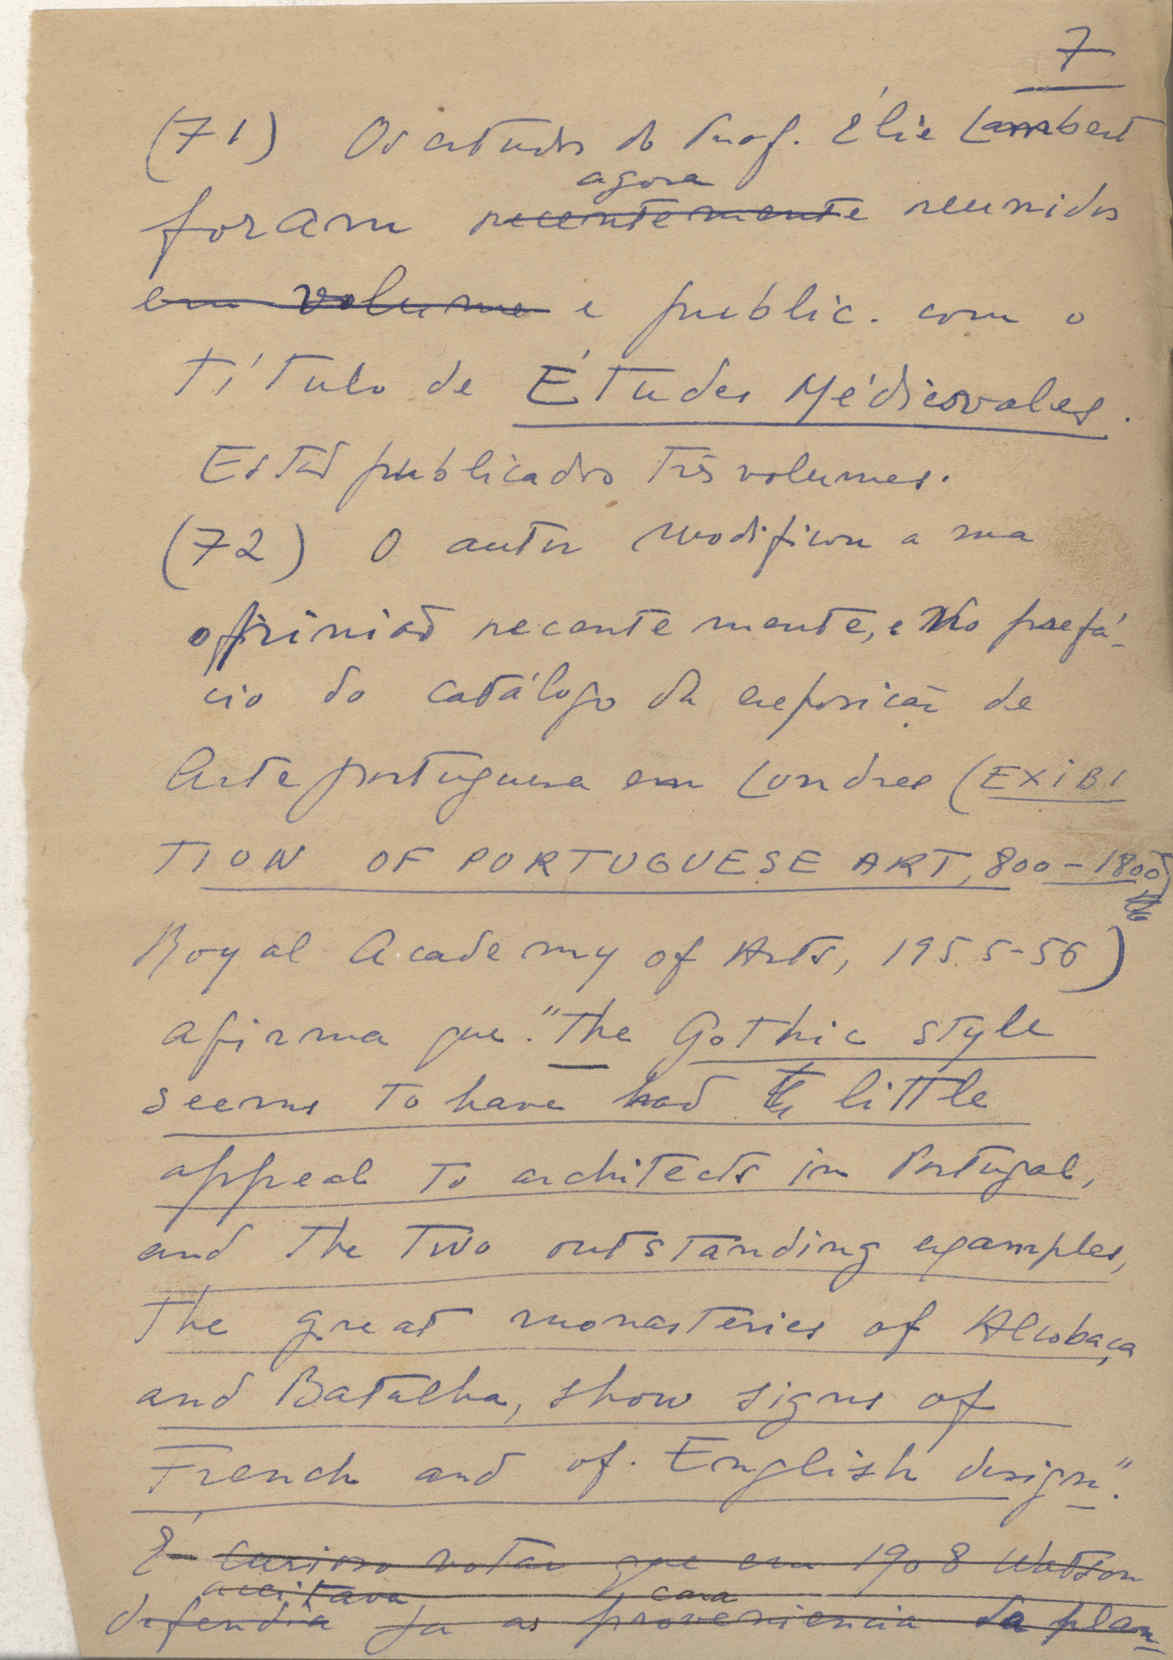 7
(71) Os estudos do Prof. Élie Lambert
agora
foram recentemente reunidos
em volume e public. com o
título de Études Médiévales.
Estão publicados três volumes.
(72) O autor modificou a sua
opinião recentemente, e No prefá-
cio do catálogo da exposição de
Arte portuguesa em Londres (EXIBI
TION OF PORTUGUESE ART, 800-1800
Royal Academy of Arts, 1955-56)
afirma que "The Gothic style
seems to have had little
appeal to architects in Portugal,
and the two outstanding examples,
the great monasteries of Alcobaça
and Batalha, show signs of
French and of English design".
É curioso notar que em 1908 Watson
aceitava
defendia já as proveniencia da plan-